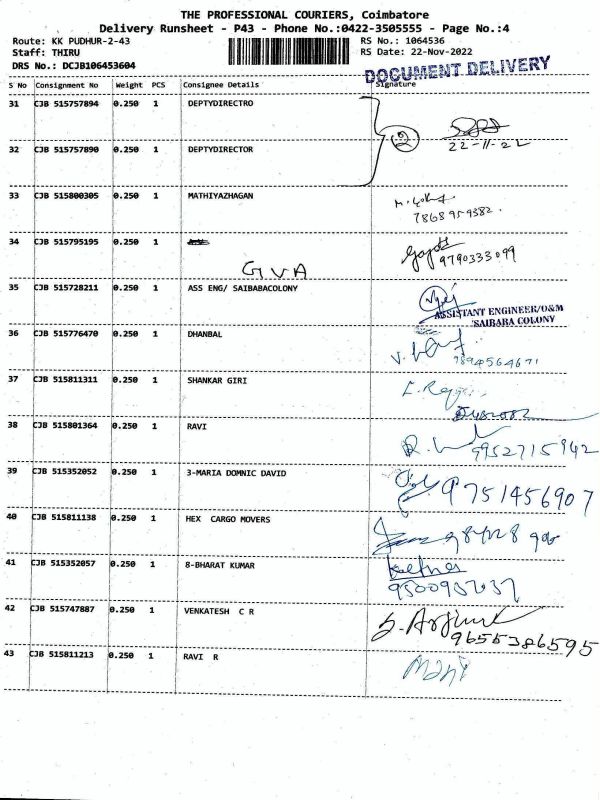 THE PROFESSIONAL COURIERS, Coimbatore
Delivery Runsheet - P43 - Phone No.:0422-3505555 - Page No.:4
Route: KK PUDHUR-2-43 RS No.: 1064536
Staff: THIRU RS Date: 22-Nov-2022
DRS No.: DCJB106453604
DOCUMENT DELIVERY
S No Consignment No Weight PCS Consignee Details Signature
31 CJB 515757894 0.250 1 DEPTYDIRECTRO
2
22-11-22
32 CJB 515757890 0.250 1 DEPTYDIRECTOR
33 CJB 515800305 0.250 1 MATHIYAZHAGAN
7868959382.
34 CJB 515795195 0.250 1
9790333099
GVA
35 CJB 515728211 0.250 1 ASS ENG/ SAIBABACOLONY
ASSISTANT ENGINEER/O&M
SAIBABA COLONY
36 CJB 515776470 0.250 1 DHANBAL
7894564671
37 CJB 515811311 0.250 1 SHANKAR GIRI
38 CJB 515801364 0.250 1 RAVI
9952715942
39 CJB 515352052 0.250 1 3-MARIA DOMNIC DAVID
9751456907
40 CJB 515811138 0.250 1 HEX CARGO MOVERS
41 CJB 515352057 0.250 1 8-BHARAT KUMAR
42 CJB 515747887 0.250 1 VENKATESH C R
9655386595
43 CJB 515811213 0.250 1 RAVI R
Mani